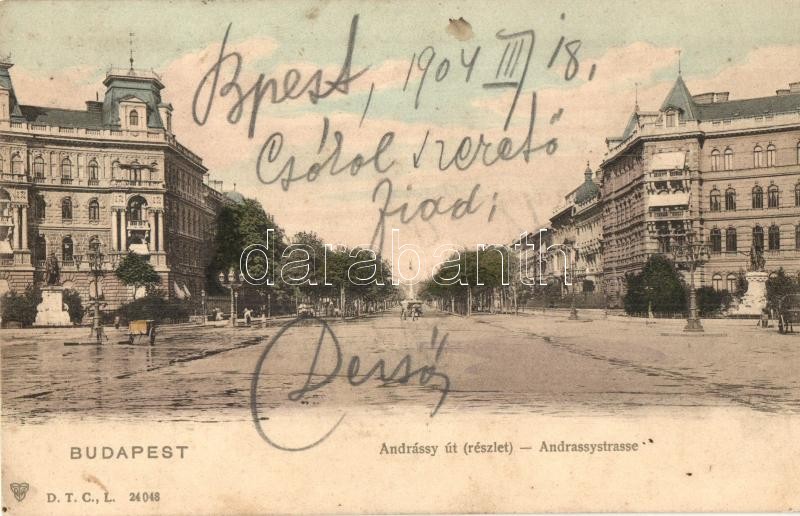 Bpest, 1904 III 18.
Csókol szerető
fiad;
darabanth
Dersső
BUDAPEST
Andrássy út (részlet) — Andrassystrasse
D. T. C., L. 24048